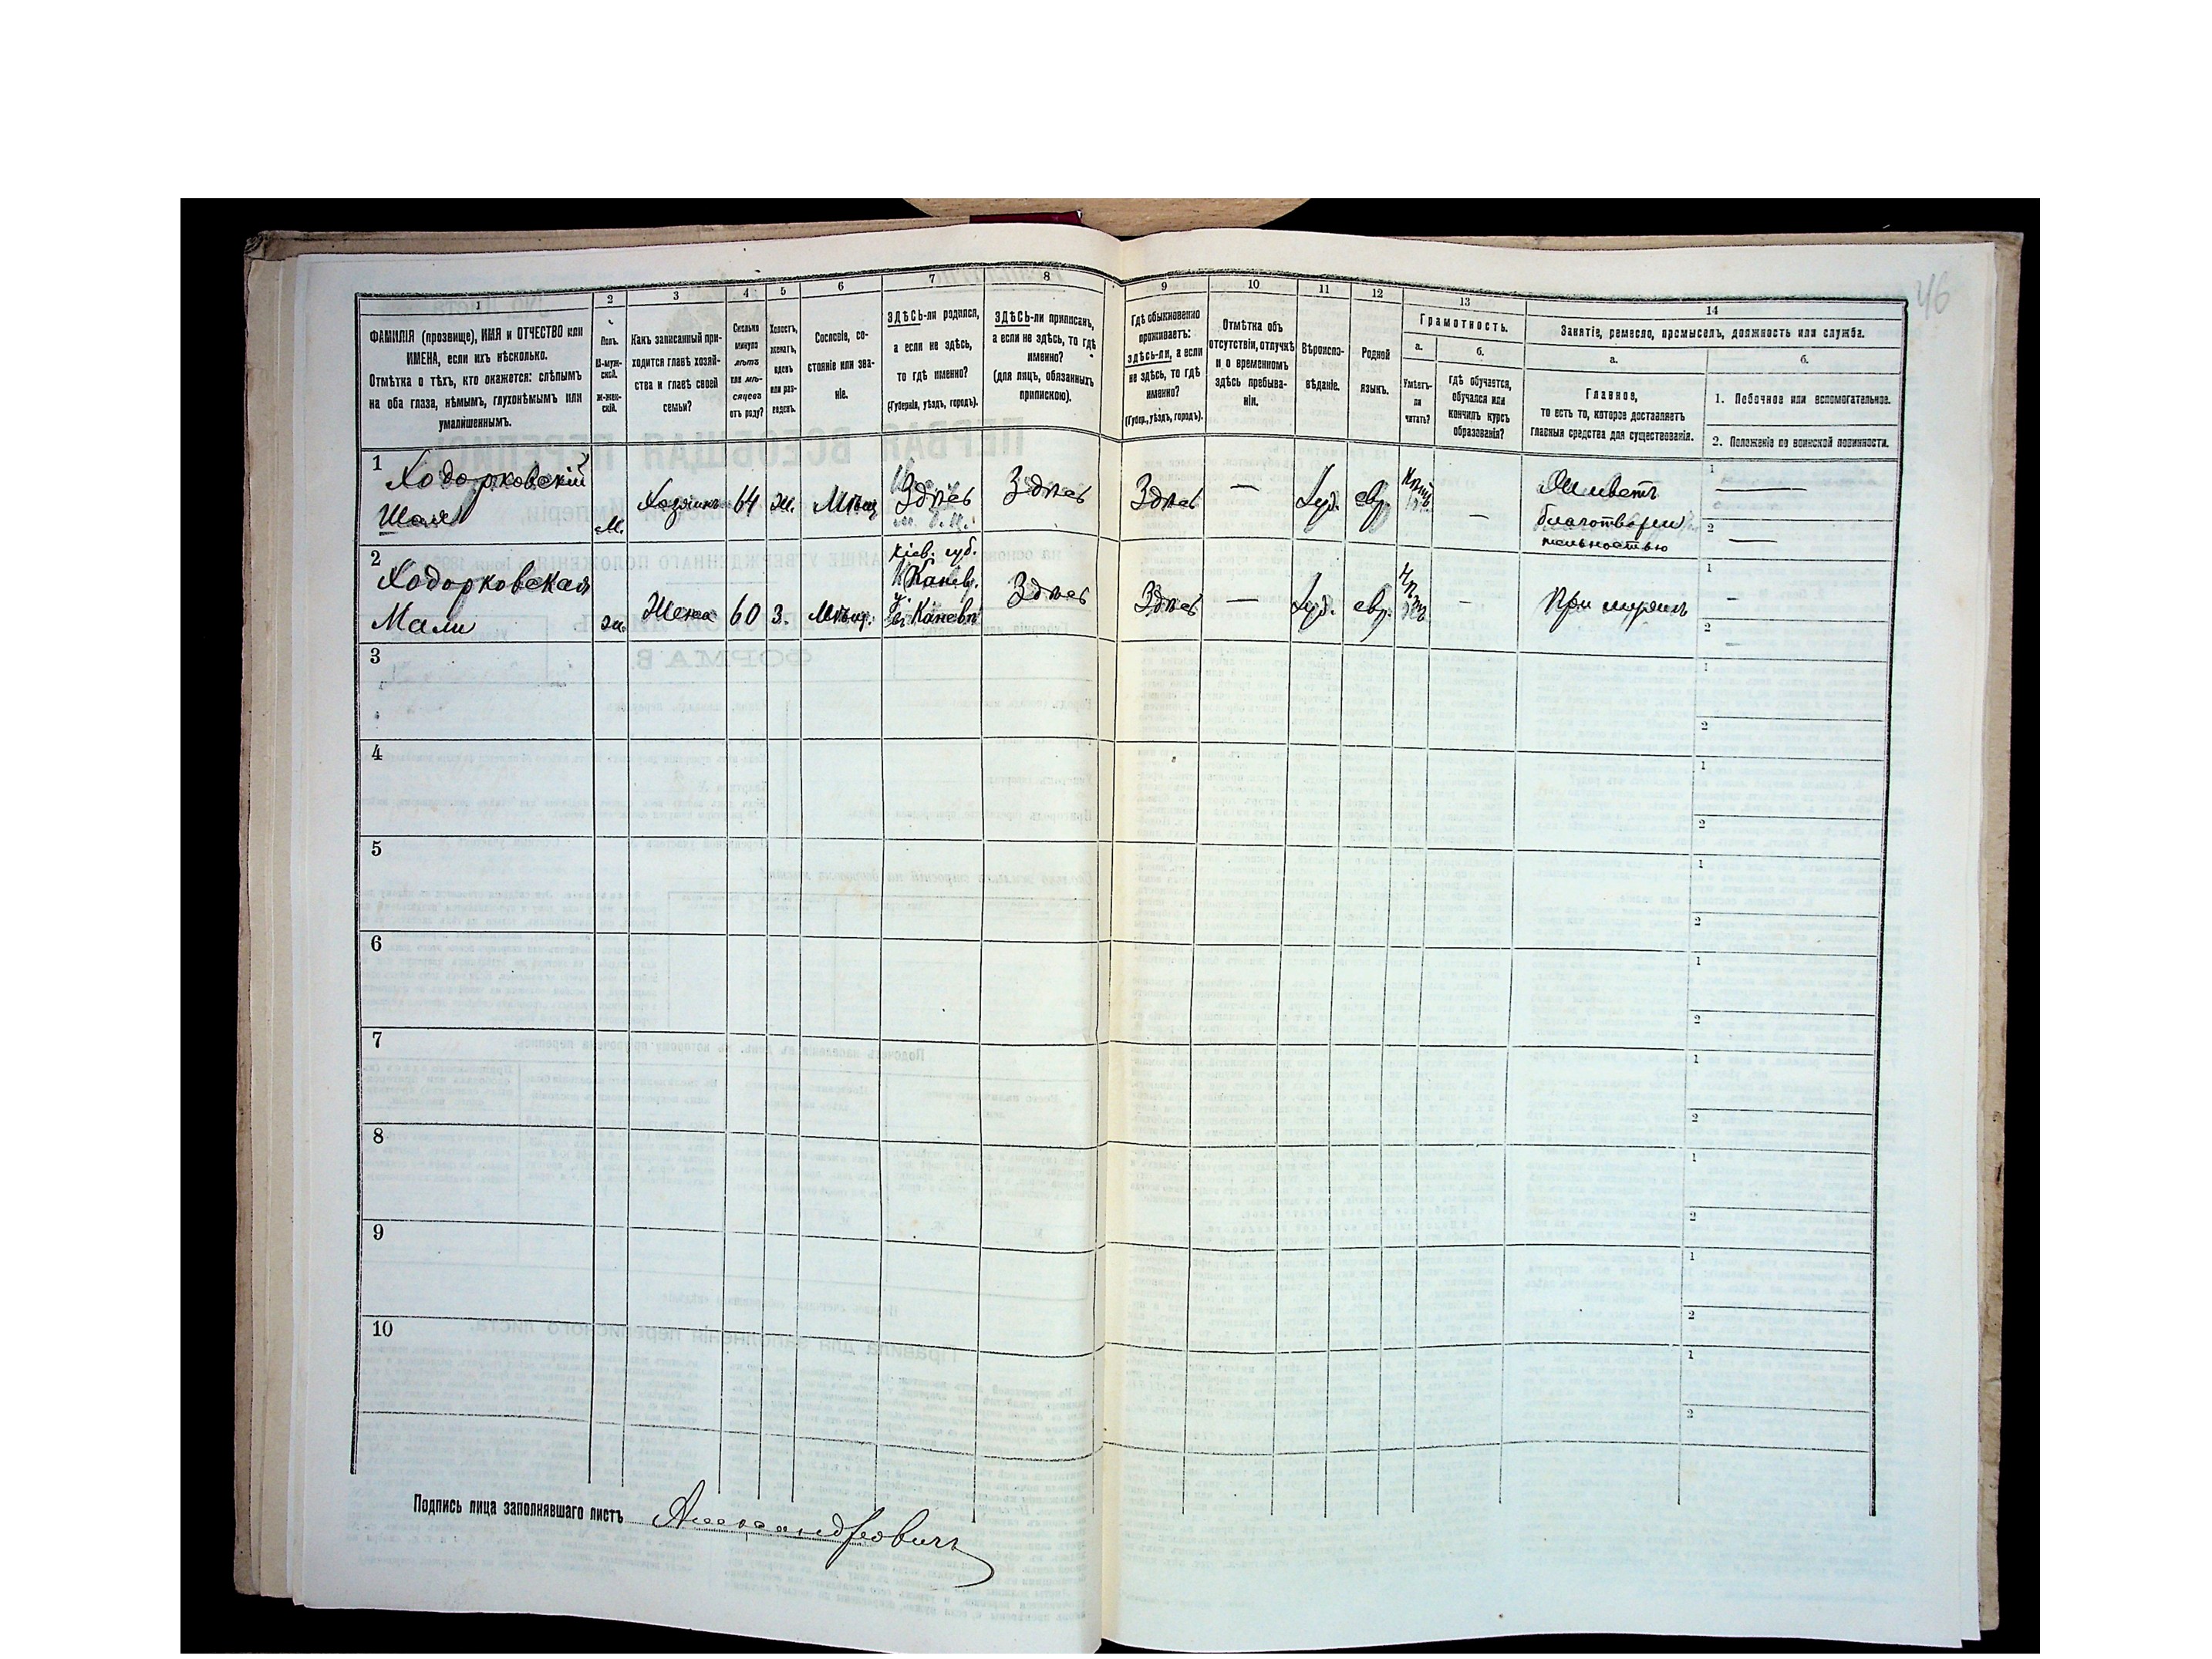 46
1
2
3
4
5
6
7
8
9
10
11
12
13
14
ФАМИЛІЯ (прозвище), ИМЯ и ОТЧЕСТВО или
ИМЕНА, если ихъ нѣсколько.
Отмѣтка о тѣхъ, кто окажется: слѣпымъ
на оба глаза, нѣмымъ, глухонѣмымъ или
умалишеннымъ.
Полъ.
М-муж-
ской.
Ж-жен-
скій.
Какъ записанный при-
ходится главѣ хозяй-
ства и главѣ своей
семьи?
Сколько
минуло
лѣтъ
или мѣ-
сяцевъ
отъ роду?
Холостъ,
женатъ,
вдовъ
или раз-
веденъ.
Сословіе, со-
стояніе или зва-
ніе.
ЗДѢСЬ-ли родился,
а если не здѣсь,
то гдѣ именно?
(Губернія, уѣздъ, городъ).
ЗДѢСЬ-ли приписанъ,
а если не здѣсь, то гдѣ
именно?
(для лицъ, обязанныхъ
припискою).
Гдѣ обыкновенно
проживаетъ:
здѣсь-ли, а если
не здѣсь, то гдѣ
именно?
(Губер., уѣздъ, городъ).
Отмѣтка объ
отсутствіи, отлучкѣ
и о временномъ
здѣсь пребыва-
ніи.
Вѣроиспо-
вѣданіе.
Родной
языкъ.
Грамотность.
а.
Умѣетъ-
ли
читать?
б.
гдѣ обучается,
обучался или
кончилъ курсъ
образованія?
Занятіе, ремесло, промыселъ, должность или служба.
а.
Главное,
то есть то, которое доставляетъ
главныя средства для существованія.
б.
1. Побочное или вспомогательное.
2. Положеніе по воинской повинности.
1
Ходорковскій
Шая
М.
Хозяинъ
64
ж.
Мѣщ.
Здѣсь
Здѣсь
Здѣсь
—
Іуд.
евр.
—
Живетъ
благотвори
тельностью
1 —
2 —
2
Ходорковская
Мали
ж.
Жена
60
з.
Мѣщ.
Кіев. губ.
Канев.
Каневѣ
Здѣсь
Здѣсь
—
Іуд.
евр.
—
При мужѣ
1 —
2 —
3
1
2
4
1
2
5
1
2
6
1
2
7
1
2
8
1
2
9
1
2
10
1
2
Подпись лица заполнявшаго листъ Александровичъ